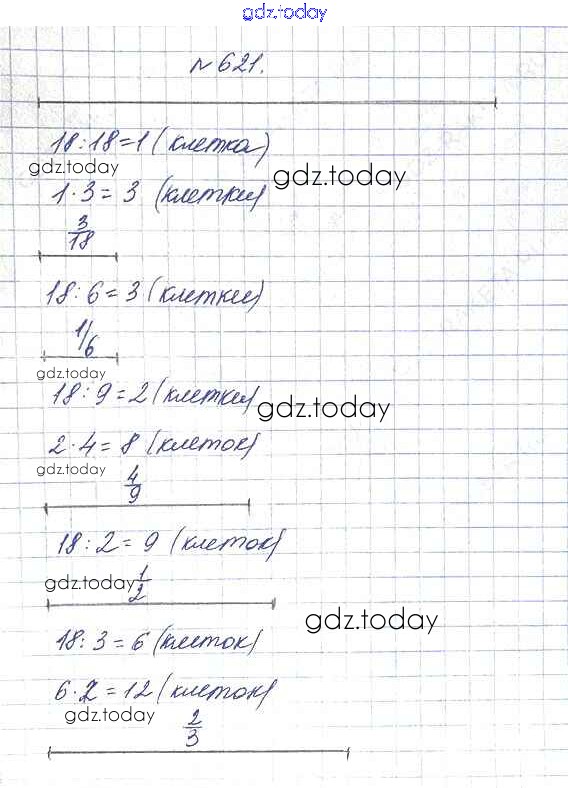 gdz.today
№621.
18:18=1 (клетка)
gdz.today
gdz.today
1·3=3 (клетки)
3/18
18:6=3 (клетки)
1/6
gdz.today
18:9=2 (клетки)
gdz.today
2·4=8 (клеток)
gdz.today
4/9
18:2=9 (клеток)
gdz.today
1/2
gdz.today
18:3=6 (клеток)
6·2=12 (клеток)
gdz.today
2/3